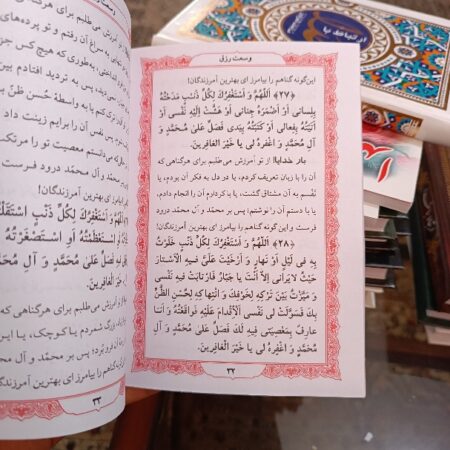 وسعت رزق
این‌گونه گناهم را بیامرز ای بهترین آمرزندگان!
﴿۲۷﴾ اَللّهُمَّ وَ اَسْتَغْفِرُكَ لِكُلِّ ذَنْبٍ مَدَحْتُهُ
بِلِسانی أَوْ أَضْمَرَهُ جَنانی أَوْ هَشَّتْ إِلَیْهِ نَفْسی أَوْ
أَتَیْتُهُ بِفِعالی أَوْ كَتَبْتُهُ بِیَدی فَصَلِّ عَلیٰ مُحَمَّدٍ وَ
آلِ مُحَمَّدٍ وَ اغْفِرْهُ لی یا خَیْرَ الْغافِرینَ.
بار خدایا! از تو آمرزش می‌طلبم برای هرگناهی که
آن را با زبان تعریف کردم، یا در دل به فکر آن بودم، یا
نفْسم به آن مشتاق گشت، یا با کردارم آن را انجام دادم،
یا با دستم آن را نوشتم؛ پس بر محمّد و آل محمّد درود
فرست و این‌گونه گناهم را بیامرز ای بهترین آمرزندگان!
﴿۲۸﴾ اَللّهُمَّ وَ اَسْتَغْفِرُكَ لِكُلِّ ذَنْبٍ خَلَوْتُ
بِهِ فی لَیْلٍ أَوْ نَهارٍ وَ أَرْخَیْتَ عَلَیَّ فیهِ الْأَسْتارَ
حَیْثُ لایَرانی إِلاّ أَنْتَ یا جَبّارُ فَارْتابَتْ فیهِ نَفْسی
وَ مَیَّزْتُ بَیْنَ تَرْكِهِ لِخَوْفِكَ وَ انْتِهاكِهِ لِحُسْنِ الظَّنِّ
بِكَ فَسَوَّلَتْ لی نَفْسی الْإِقْدامَ عَلَیْهِ فَواقَعْتُهُ وَ أَنَا
عارِفٌ بِمَعْصِیَتی فیهِ لَكَ فَصَلِّ عَلیٰ مُحَمَّدٍ وَ آلِ
مُحَمَّدٍ وَ اغْفِرْهُ لی یا خَیْرَ الْغافِرینَ.
۳۲
آمرزش می طلبم برای هرگناهی
به سراغ آن رفتم و تو پرده‌های
به‌طوری که هیچ کس جز
پس به تردید افتادم بین
ترک کنم یا به واسطهٔ حُسن ظنّ به
نفْس آن را برایم زینت داد
می‌دانستم معصیت تو را مرتکب
محمّد و آل محمّد درود فرست
را بیامرز ای بهترین آمرزندگان!
اَللّهُمَّ وَ اَسْتَغْفِرُكَ لِكُلِّ ذَنْبٍ اسْتَقْلَلْتُهُ
أَوِ اسْتَصْغَرْتُهُ
فَصَلِّ عَلیٰ مُحَمَّدٍ وَ آلِ مُحَمَّدٍ
خَیْرَ الْغافِرینَ.
آمرزش می‌طلبم برای هرگناهی
بزرگ شمردم یا کوچک، یا این
پس بر محمّد و آل محمّد
گناهم را بیامرز ای بهترین آمرزندگان!
۳۳
ارتباط با